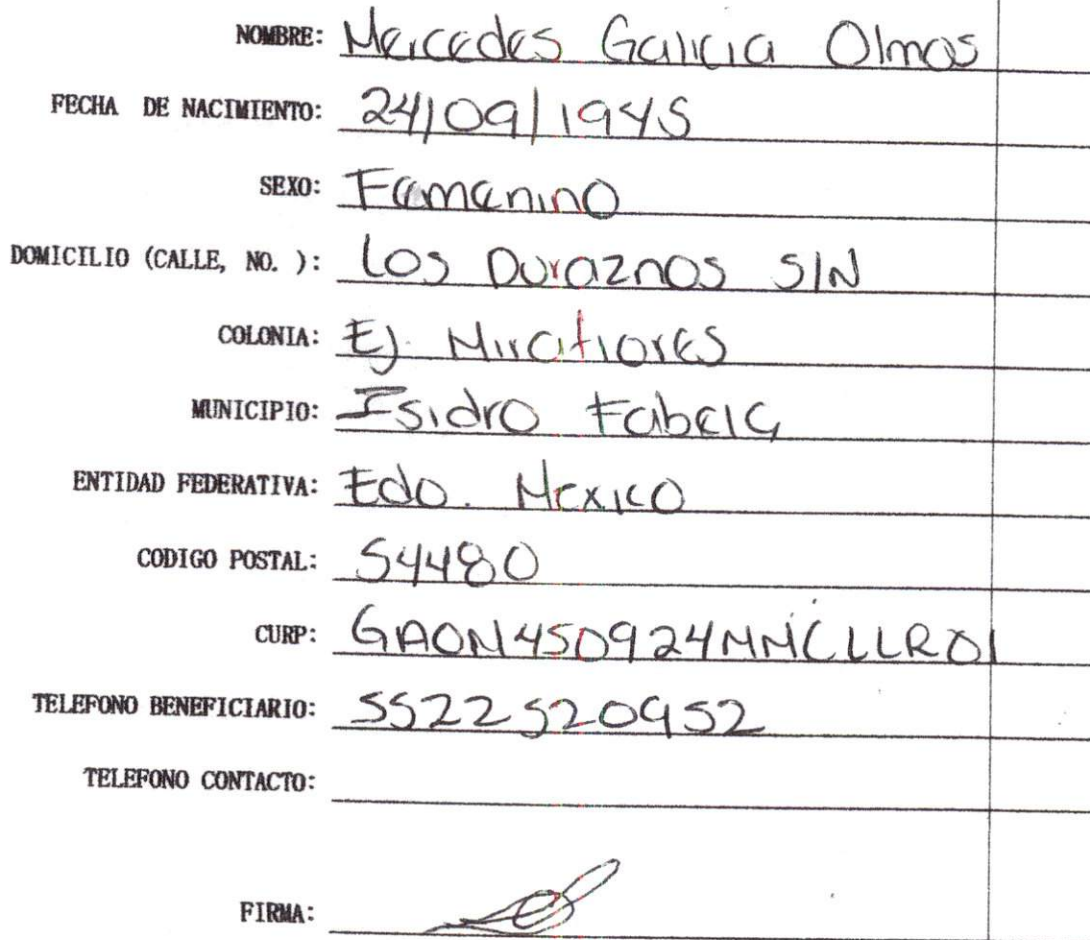 NOMBRE: Mercedes Galicia Olmos
FECHA DE NACIMIENTO: 24/09/1945
SEXO: Femenino
DOMICILIO (CALLE, NO. ): Los Duraznos S/N
COLONIA: Ej. Miraflores
MUNICIPIO: Isidro Fabela
ENTIDAD FEDERATIVA: Edo. Mexico
CODIGO POSTAL: 54480
CURP: GAOM450924MMCLLR01
TELEFONO BENEFICIARIO: 5522520952
TELEFONO CONTACTO:
FIRMA: